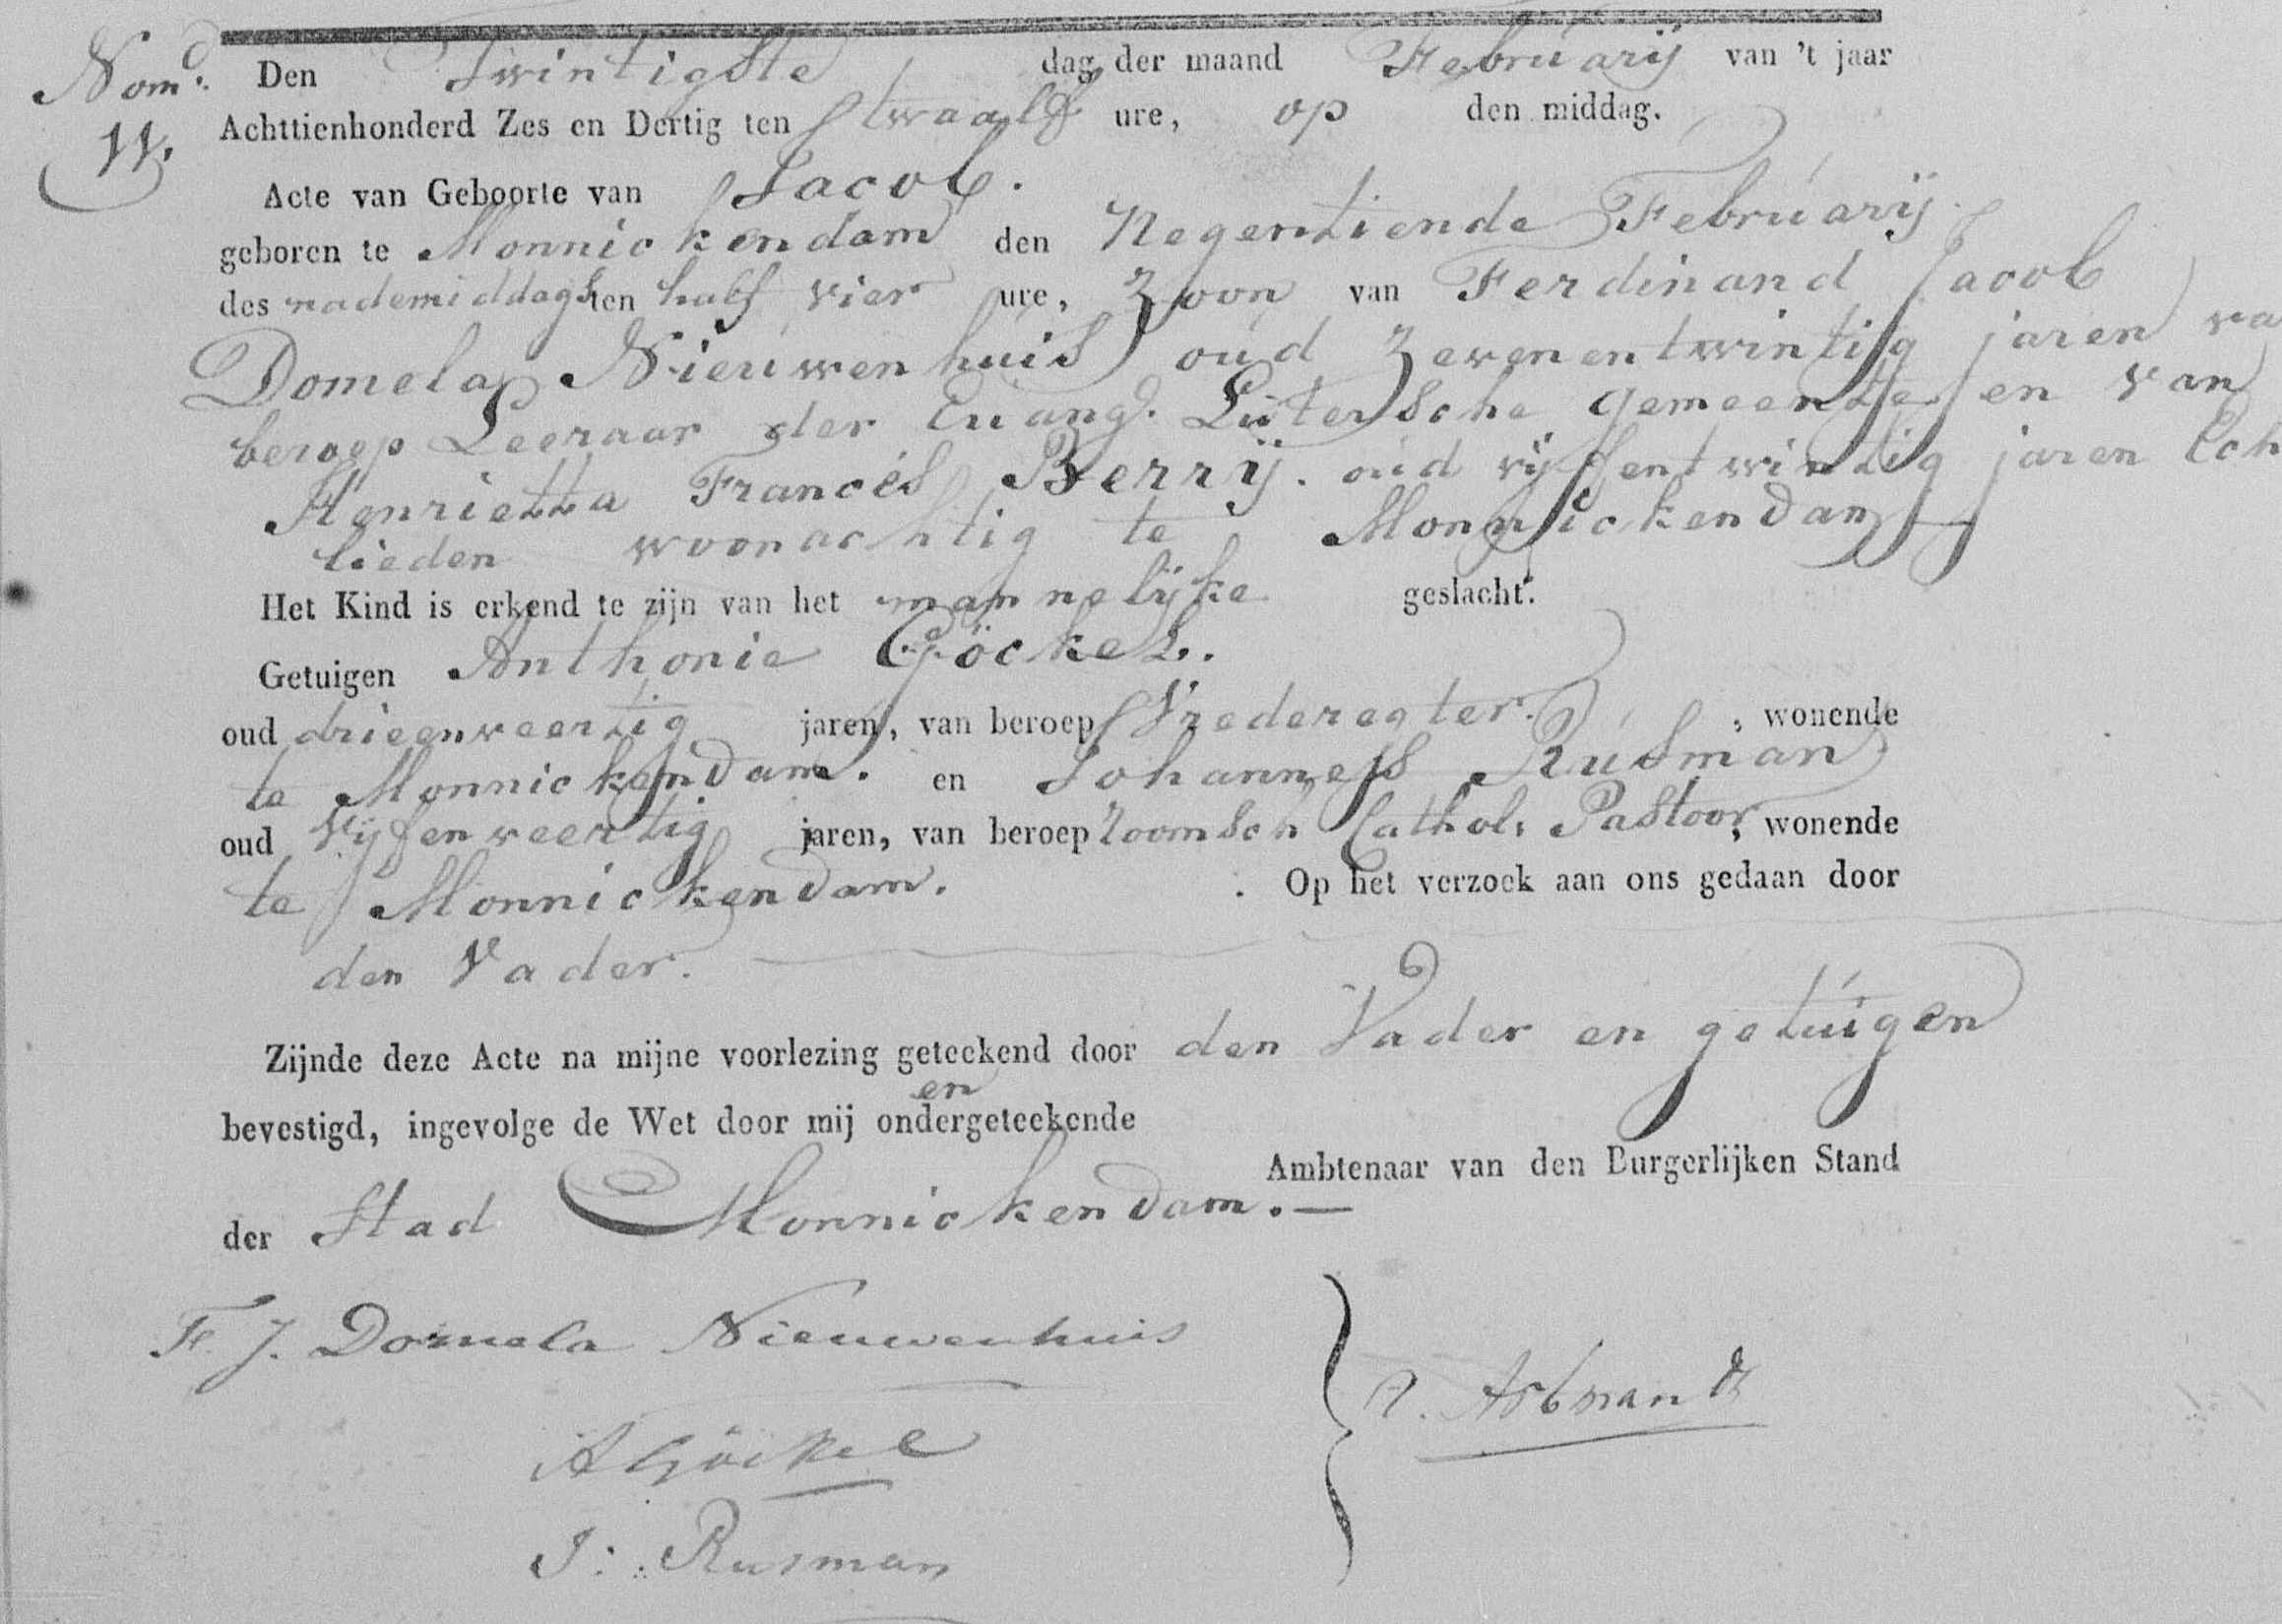 Nomr. Den Twintigste dag der maand Februarij van 't jaar
11. Achttienhonderd Zes en Dertig ten twaalf ure, op den middag.
Acte van Geboorte van Jacob.
geboren te Monnickendam den Negentiende Februarij
des nademiddags ten half vier ure, Zoon van Ferdinand Jacob
Domela Nieuwenhuis oud Zevenentwintig jaren va
beroep Leeraar der Euangs. Lutersche gemeente en van
Henrietta Francés Berrij. oud vijfentwintig jaren Ech
lieden woonachtig te Monnickendam
Het Kind is erkend te zijn van het mannelijke geslacht.
Getuigen Anthonie Göckel.
oud drieenveertig jaren, van beroep Vrederegter. , wonende
te Monnickendam. en Johannes Rusman
oud Vijfenveertig jaren, van beroep roomsch Cathol: Pastoor, wonende
te Monnickendam. . Op het verzoek aan ons gedaan door
den Vader.
Zijnde deze Acte na mijne voorlezing geteekend door den Vader en getuigen
en
bevestigd, ingevolge de Wet door mij ondergeteekende
Ambtenaar van den Burgerlijken Stand
der Stad Monnickendam.—
F. J. Domela Nieuwenhuis
A Göckel
J: Rusman